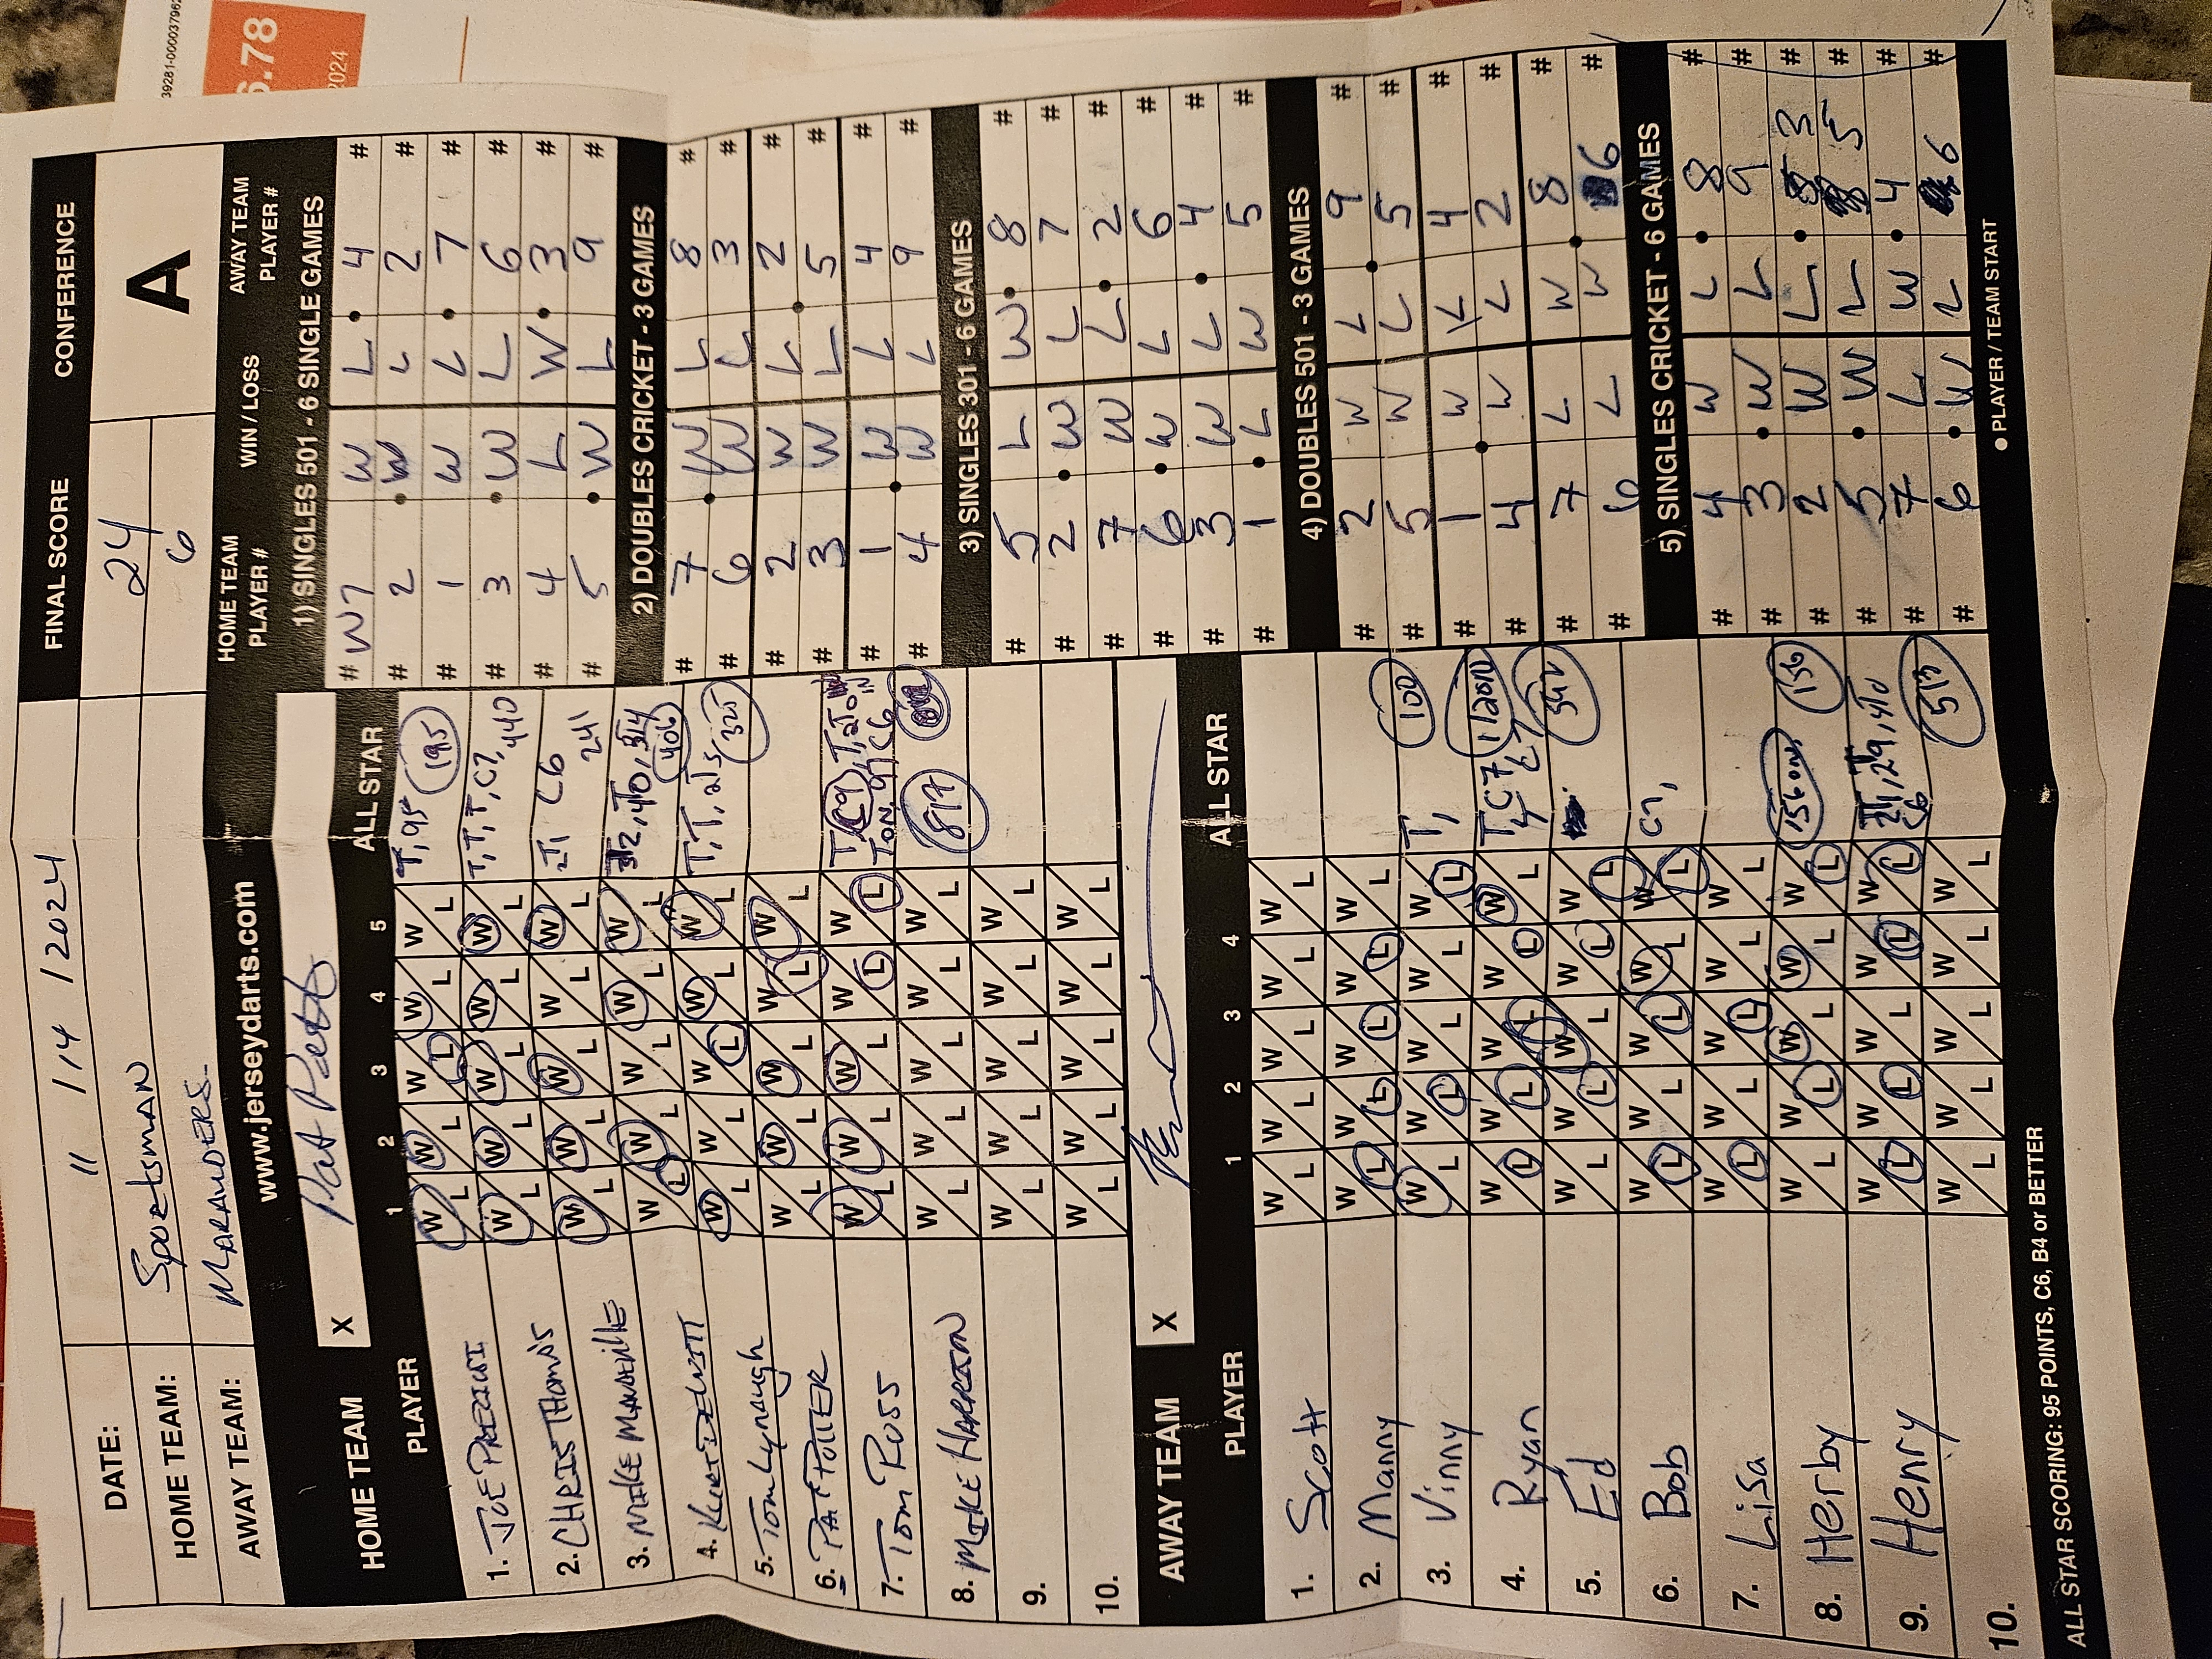 39281-0000037962
6.78
2024
DATE: 11 / 14 / 2024
FINAL SCORE
CONFERENCE
HOME TEAM: Sportsman
24
A
AWAY TEAM: MARAUDERS
6
www.jerseydarts.com
HOME TEAM PLAYER #
WIN / LOSS
AWAY TEAM PLAYER #
HOME TEAM
X
PLAYER
1 2 3 4 5
ALL STAR
1.
2. CHRIS THOMAS
3. MIKE MANDEVILLE
4. KURT DEWITT
5. Tom Lynaugh
6. PAT POTTER
7. TOM ROSS
8. MIKE HARRISON
9.
10.
T, 95 195
T, T, T, C7, 440
2T, C6 241
406
T, T, 25 325
817
AWAY TEAM
X
PLAYER
1 2 3 4
ALL STAR
1. Scott
2. Manny
3. Vinny
4. Ryan
5. Ed
6. Bob
7. Lisa
8. Herby
9. Henry
10.
100
T,
C7,
156
ALL STAR SCORING: 95 POINTS, C6, B4 or BETTER
1) SINGLES 501 - 6 SINGLE GAMES
# W7 W L 4 #
# 2 W L 2 #
# 1 W L 7 #
# 3 W L 6 #
# 4 L W 3 #
# 5 W L 9 #
2) DOUBLES CRICKET - 3 GAMES
# 7 W L 8 #
# 6 W L 3 #
# 2 W L 2 #
# 3 W L 5 #
# 1 W L 4 #
# 4 W L 9 #
3) SINGLES 301 - 6 GAMES
# 5 L W 8 #
# 2 W L 7 #
# 7 W L 2 #
# 6 W L 6 #
# 3 W L 4 #
# 1 L W 5 #
4) DOUBLES 501 - 3 GAMES
# 2 W L 9 #
# 5 W L 5 #
# 1 W L 4 #
# 4 W L 2 #
# 7 L W 8 #
# 6 L W 6 #
5) SINGLES CRICKET - 6 GAMES
# 4 W L 8 #
# 3 W L 9 #
# 2 W L 3 #
# 5 W L 5 #
# 7 L W 4 #
# 6 W L 6 #
● PLAYER / TEAM START